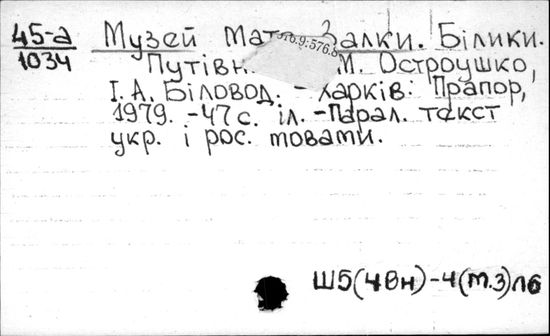 45-а Музей Мат Залки. Білики.
1034 Путівн М. Остроушко,
І. А. Біловод. - Харків: Прапор,
1979. -47 с. іл. -Парал. текст
укр. і рос. мовами.
Ш5(4Вн)-4(m.3)л6